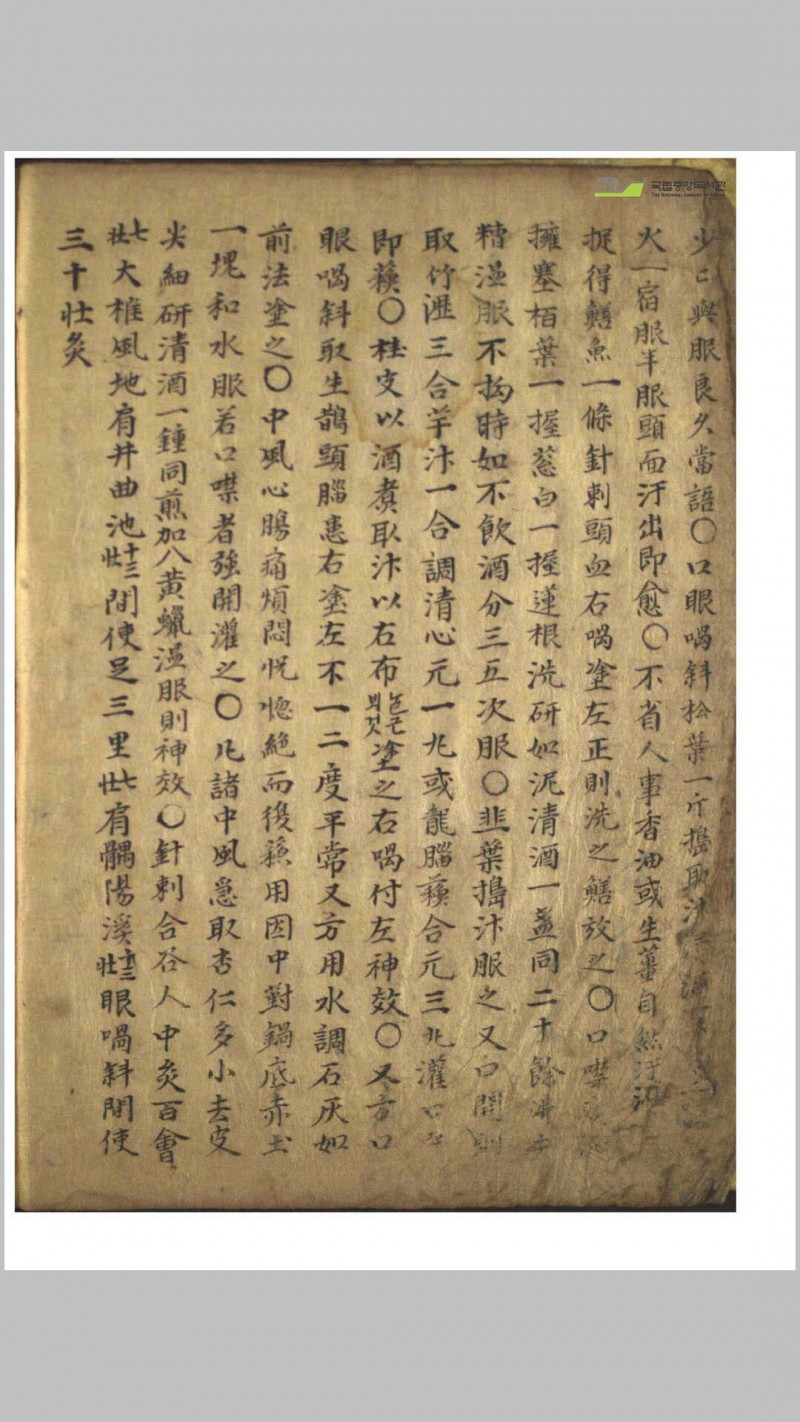 少〻與服良久當語〇口眼喎斜松葉一斤搗取汁
火一宿服半服頭面汗出即愈〇不省人事香油或生薑自然汁
捉得鱔魚一條針刺頭血右喎塗左正則洗之鱔放之〇口噤
擁塞栢葉一握葱白一握蓮根洗研如泥清酒一盞同二十餘沸
糟溫服不拘時如不飮酒分三五次服〇韭葉搗汁服之又口開則
取竹瀝三合芊汴一合調清心元一丸或龍腦蘓合元三丸灌口
即蘓〇桂皮以酒煮取汁以右布 塗之右喎付左神效〇又方口
眼喎斜取生鵲頭腦患右塗左不一二度平常又方用水調石灰如
前法塗之〇中風心膓痛煩悶恍惚絶而後蘓用因中對鍋底赤土
一塊和水服若口噤者強開灌之〇凡諸中風急取杏仁多小去皮
尖細研清酒一鍾同煎加八黃蠟溫服則神效〇針刺合谷人中灸百會
七壯大椎風池肩井曲池十三壯間使足三里七壯肩髃陽溪十三壯眼喎斜間使
三十壯灸
국립중앙도서관
THE NATIONAL LIBRARY OF KOREA